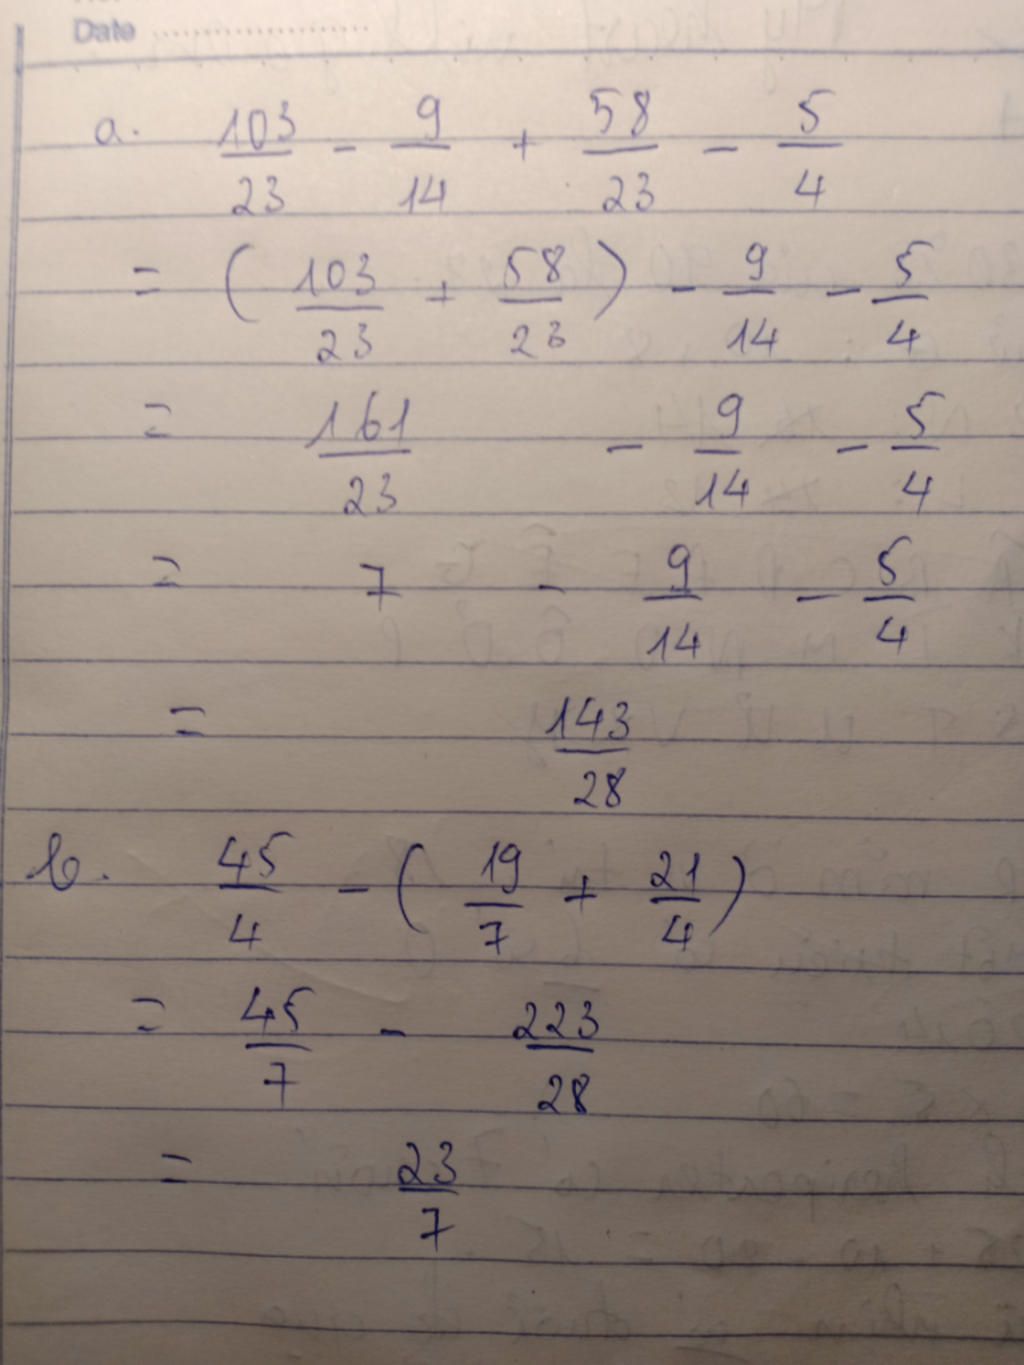 Date ....................
a. 103/23 - 9/14 + 58/23 - 5/4
= (103/23 + 58/23) - 9/14 - 5/4
= 161/23 - 9/14 - 5/4
= 7 - 9/14 - 5/4
= 143/28
b. 45/4 - (19/7 + 21/4)
= 45/7 - 223/28
= 23/7